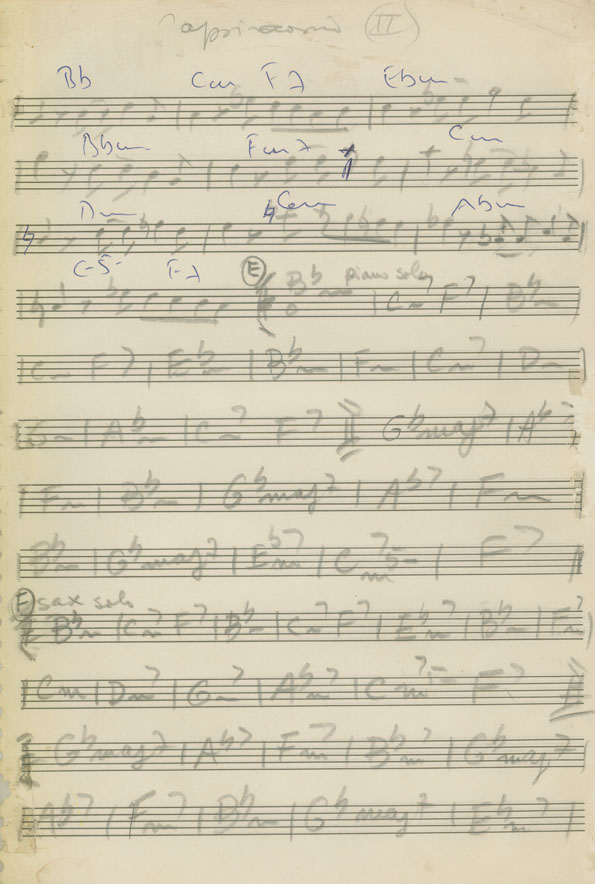 II
Bb Cm F7 Ebm
Bbm Fm7 Cm
Dm Cm Abm
C-5- F7 E Bbm piano solo | Cm7 F7 | Bbm
Cm F7 | Ebm | Bbm | Fm | Cm7 | Dm
Gm | Abm | Cm7 F7 || Gbmaj7 | Ab7
Fm | Bbm | Gbmaj7 | Ab7 | Fm
Bbm | Gbmaj7 | Ebm7 | Cm75- | F7 ||
F sax solo
Bbm | Cm7 F7 | Bbm | Cm7 F7 | Ebm7 | Bbm | Fm7
Cm | Dm7 | Gm7 | Abm7 | Cm75- F7 ||
Gbmaj7 | Ab7 | Fm7 | Bbm7 | Gbmaj7
Ab7 | Fm7 | Bbm | Gbmaj7 | Ebm7 |